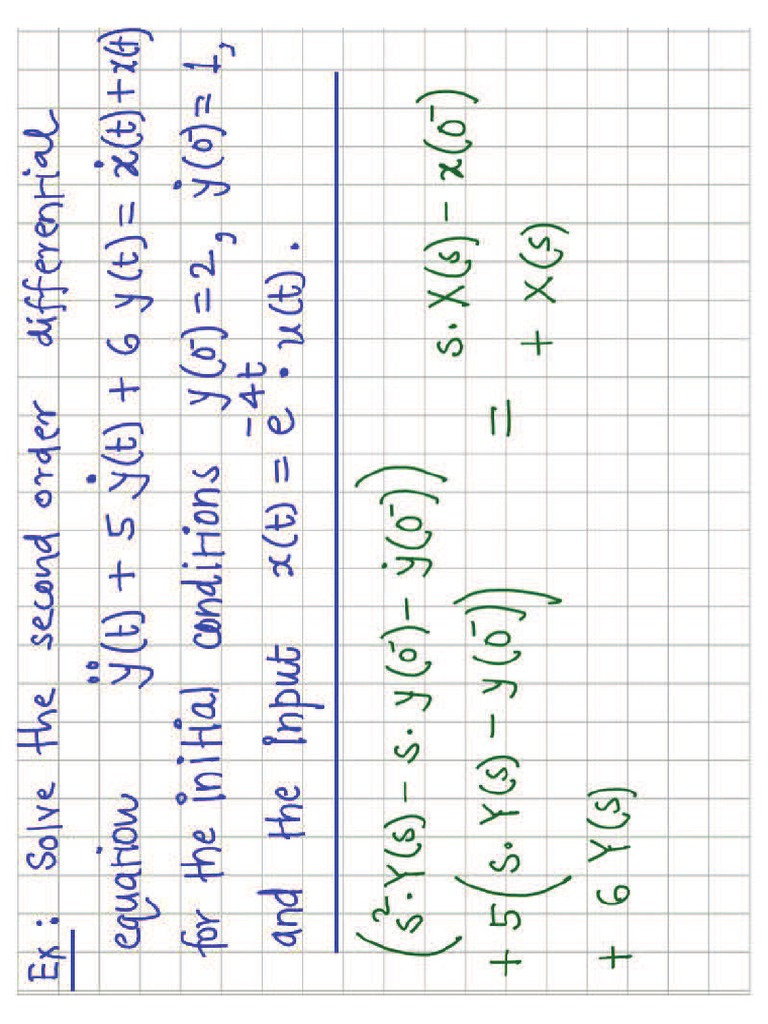 Ex: Solve the second order differential
equation ÿ(t) + 5 ẏ(t) + 6 y(t) = ẋ(t) + x(t)
for the initial conditions y(0⁻) = 2, ẏ(0⁻) = 1,
and the input x(t) = e⁻⁴ᵗ · u(t).
(s²·Y(s) - s·y(0⁻) - ẏ(0⁻))
+ 5(s·Y(s) - y(0⁻))
+ 6 Y(s)
=
s·X(s) - x(0⁻)
+ X(s)